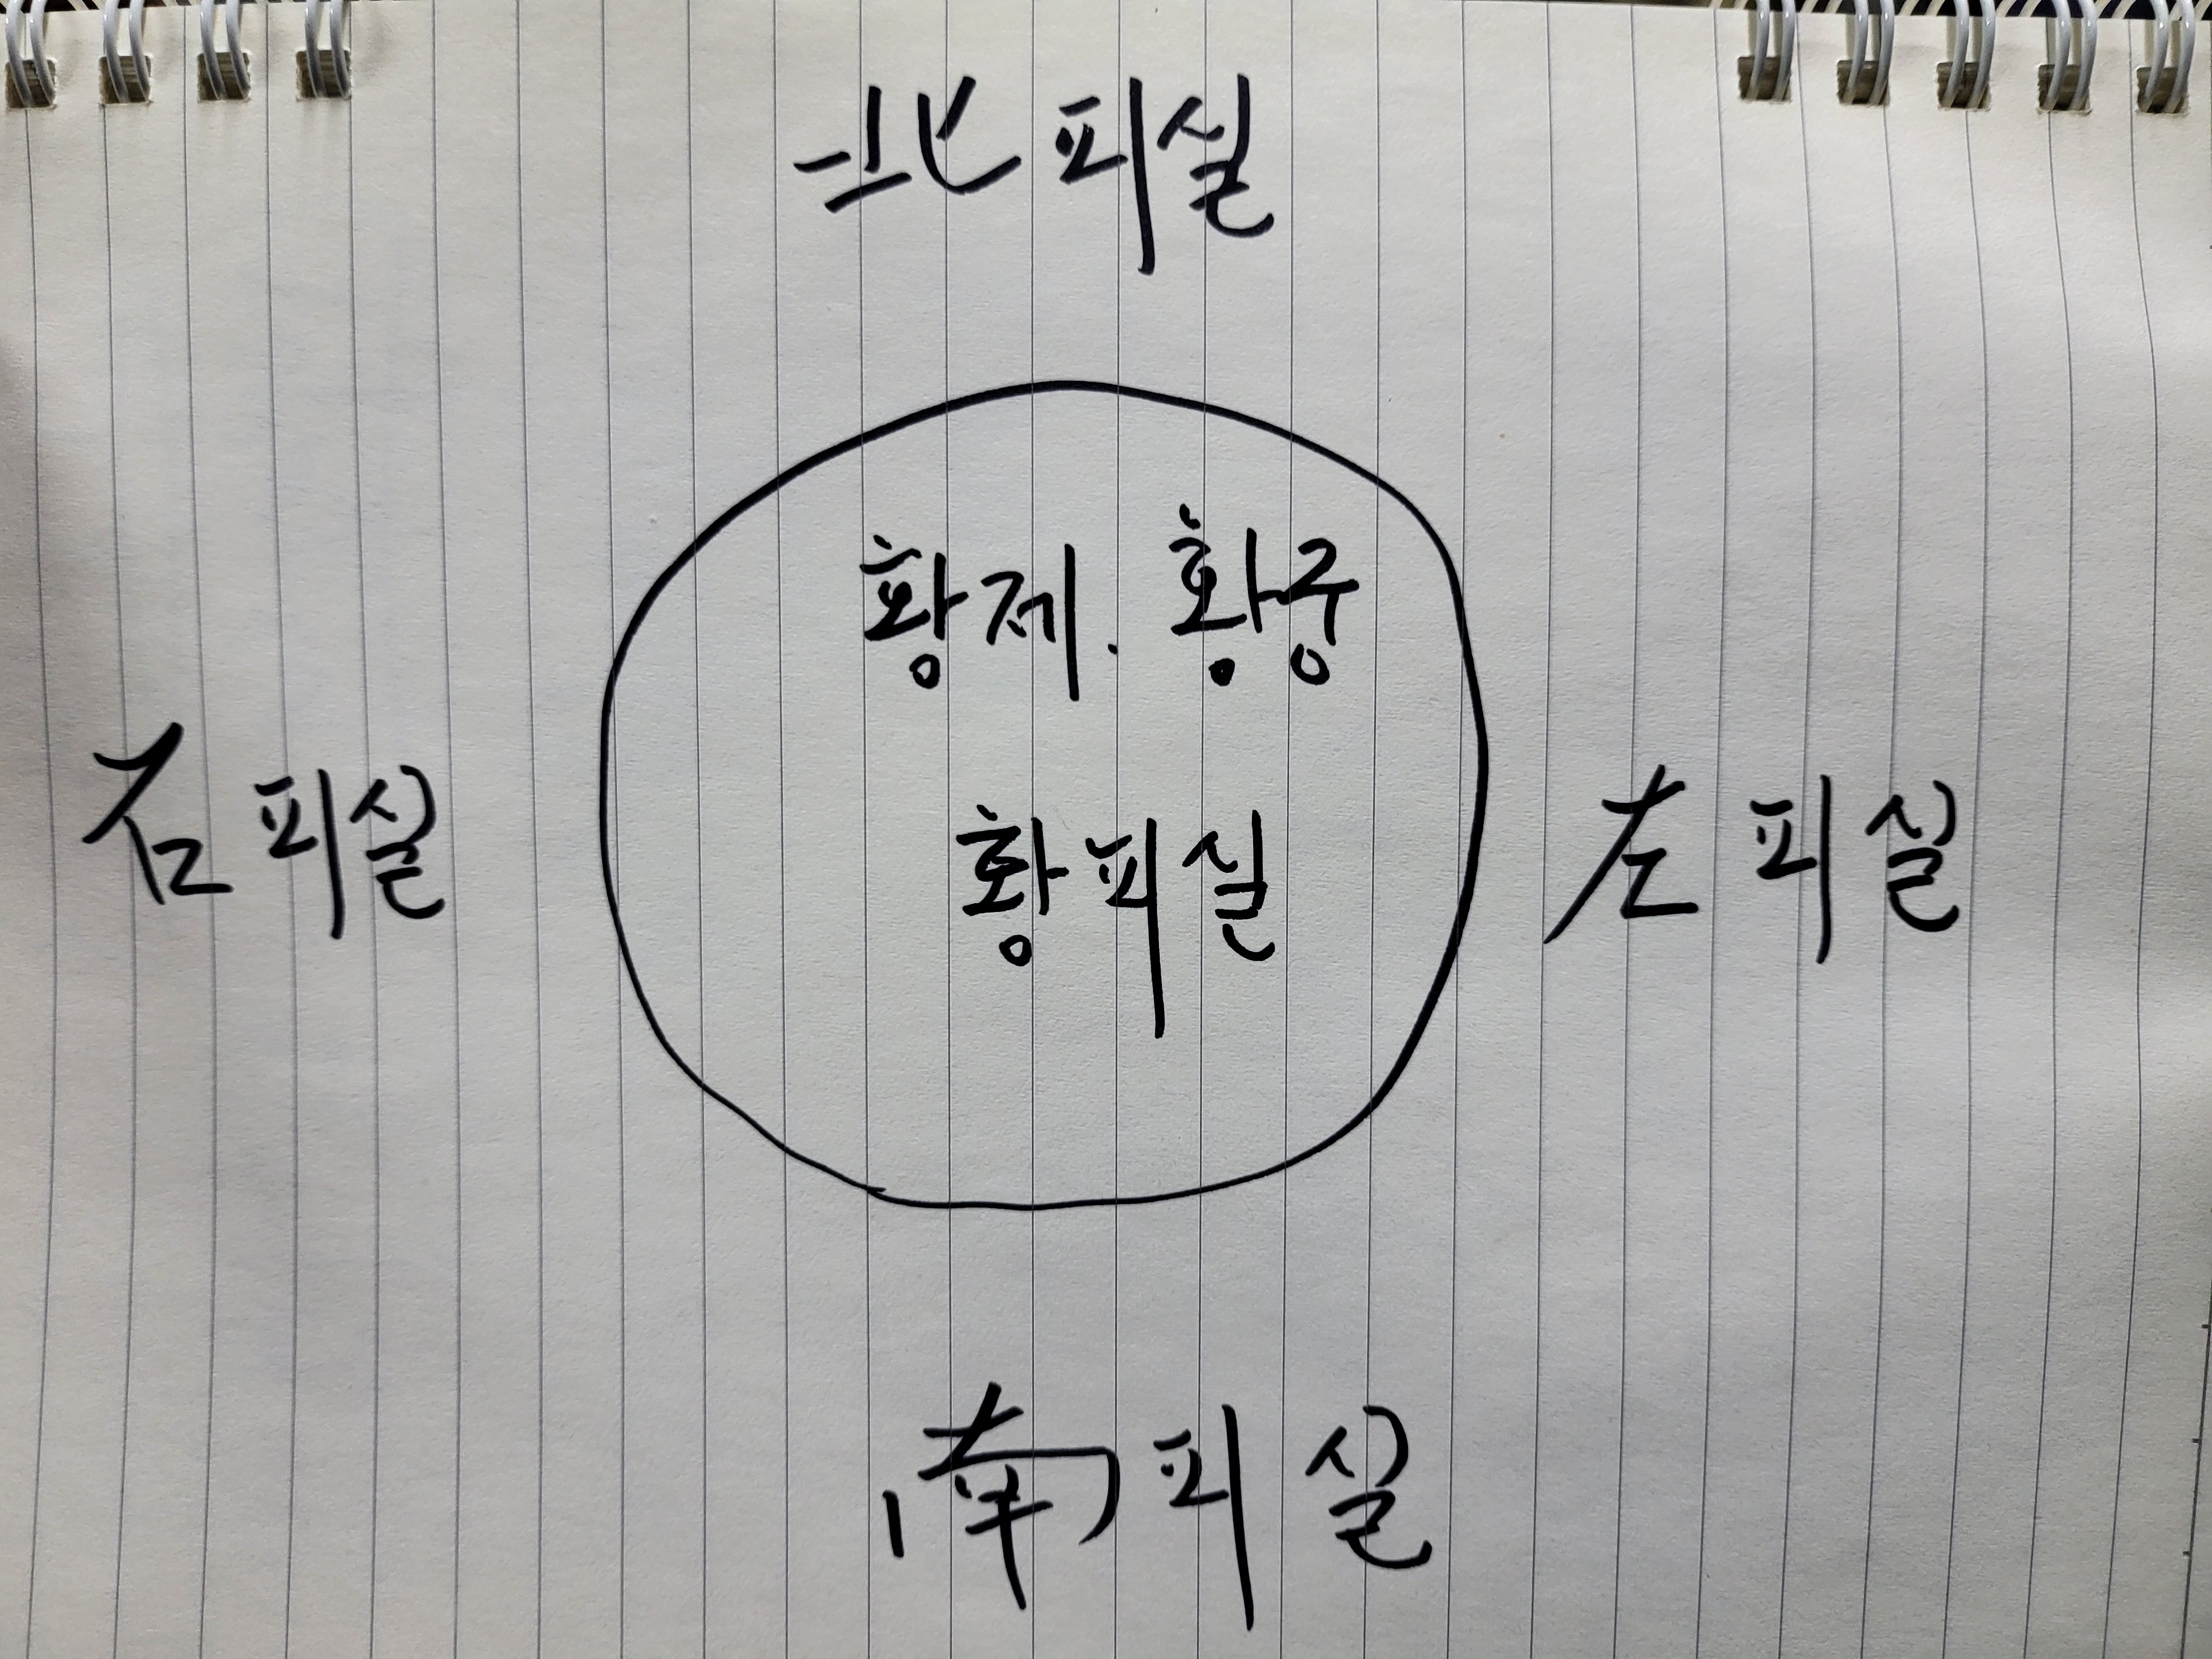 北피실
황제. 황궁
右피실
황피실
左피실
南피실